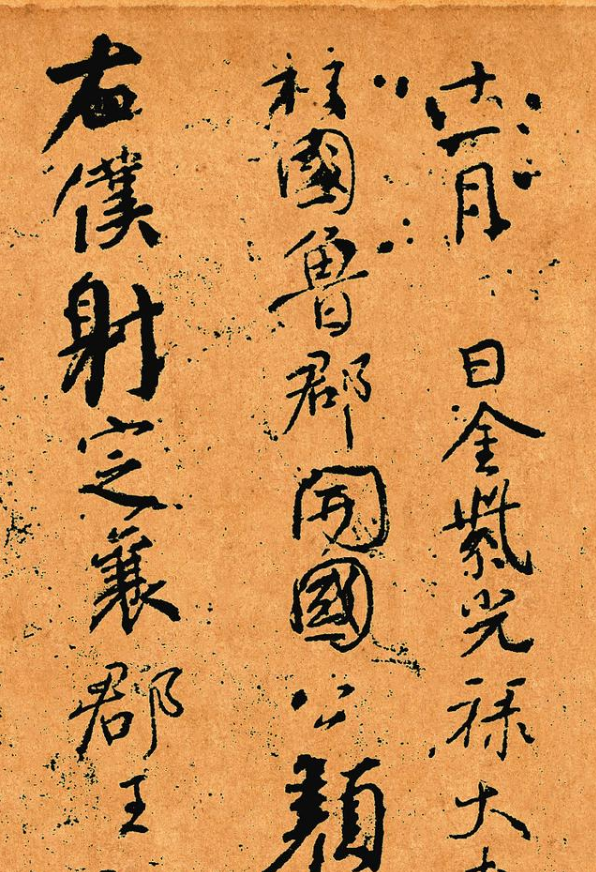 十一月 日金紫光祿大
柱國魯郡開國公顏
右僕射定襄郡王